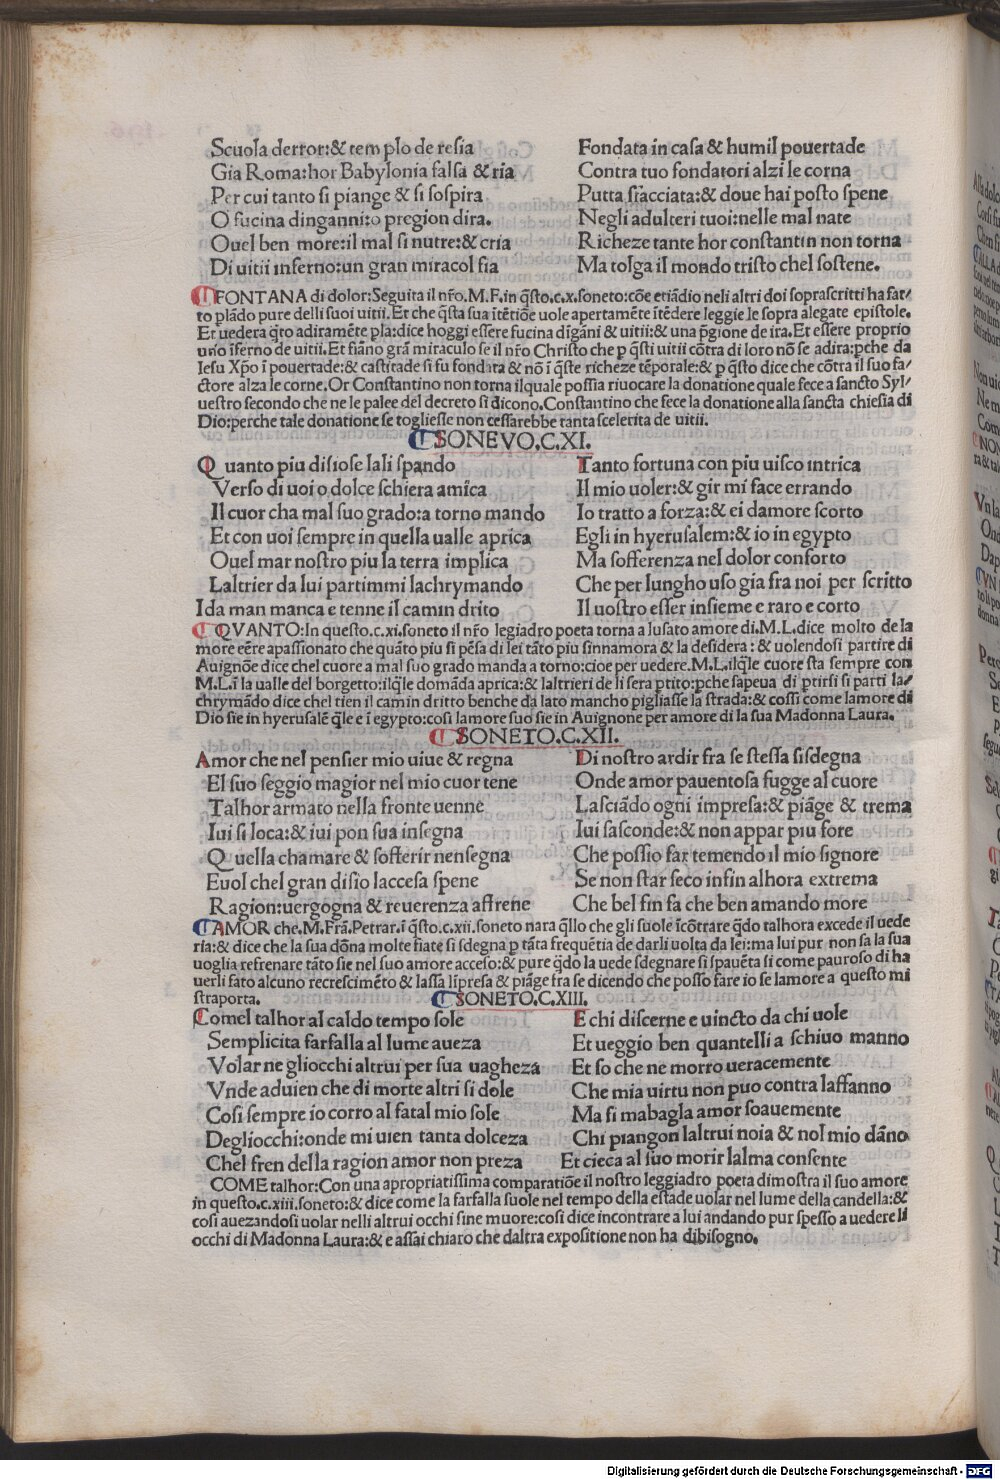 Scuola derrori:& templo de resia
Gia Roma:hor Babylonia falsa & ria
Per cui tanto si piange & si sospira
O fucina dinganni:o pregion dira.
Ouel ben more:il mal si nutre:& cria
Di uitii inferno:un gran miracol fia
Fondata in casa & humil pouertade
Contra tuo fondatori alzi le corna
Putta sfacciata:& doue hai posto spene
Negli adulteri tuoi:nelle mal nate
Richeze tante hor constantin non torna
Ma tolga il mondo tristo chel sostene.
FONTANA di dolor:Seguita il nr̃o.M.F.in q̃sto.c.x.soneto:cõe etiãdio neli altri doi soprascritti ha fat/
to plãdo pure delli suoi uitii.Et che q̃sta sua ĩtẽtiõe uole apertamẽte ĩtẽdere leggie le sopra alegate epistole.
Et uedera q̃to adiratamẽte pla:dice hoggi essere fucina dĩgãni & uitii:& una p̃gione de ira.Et essere proprio
uno ĩferno de uitii.Et fiãno grã miraculo se il nr̃o Christo che p q̃sti uitii cõtra di loro nõ se adira:pche da
Iesu Xp̃o ĩ pouertade:& castitade si fu fondata & nõ ĩ q̃ste richeze tẽporale:& p q̃sto dice che cõtra il suo fa/
ctore alza le corne.Or Constantino non torna ilquale possia riuocare la donatione quale fece a sancto Syl/
uestro secondo che ne le palee del decreto si dicono.Constantino che fece la donatione alla sancta chiesia di
Dio:perche tale donatione se togliesse non cessarebbe tanta scelerita de uitii.
SONEVO.C.XI.
Quanto piu disiose lali spando
Verso di uoi o dolce schiera amica
Il cuor cha mal suo grado:a torno mando
Et con uoi sempre in quella ualle aprica
Ouel mar nostro piu la terra implica
Laltrier da lui partimmi lachrymando
Ida man manca e tenne il camin drito
Tanto fortuna con piu uisco intrica
Il mio uoler:& gir mi face errando
Io tratto a forza:& ei damore scorto
Egli in hyerusalem:& io in egypto
Ma sofferenza nel dolor conforto
Che per lungho uso gia fra noi per scritto
Il uostro esser insieme e raro e corto
QVANTO:In questo.c.xi.soneto il nr̃o legiadro poeta torna a lusato amore di.M.L.dice molto de la
more eẽre apassionato che quãto piu si pẽsa di lei tãto piu sinnamora & la desidera:& uolendosi partire di
Auignõe dice chel cuore a mal suo grado manda a torno:cioe per uedere.M.L.ilq̃le cuore sta sempre con
M.L.ĩ la ualle del borgetto:ilq̃le domãda aprica:& laltrieri de li sera ptito:pche sapeua di ptirsi si parti la/
chrymãdo dice chel tien il camin dritto benche da lato mancho pigliasse la strada:& cossi come lamore di
Dio sie in hyerusalẽ q̃le e ĩ egypto:cosi lamore suo sie in Auignone per amore di la sua Madonna Laura.
SONETO.C.XII.
Amor che nel pensier mio uiue & regna
El suo seggio magior nel mio cuor tene
Talhor armato nella fronte uenne
Iui si loca:& iui pon sua insegna
Quella chamare & sofferir nensegna
Euol chel gran disio laccesa spene
Ragion:uergogna & reuerenza affrene
Di nostro ardir fra se stessa sisdegna
Onde amor pauentosa fugge al cuore
Lasciãdo ogni impresa:& piãge & trema
Iui sasconde:& non appar piu fore
Che possio far temendo il mio signore
Se non star seco infin alhora extrema
Che bel fin fa che ben amando more
AMOR che.M.Frã.Petrar.ĩ q̃sto.c.xii.soneto nara q̃llo che gli suole ĩcõtrare q̃do talhora excede il uede
ria:& dice che la sua dõna molte fiate si sdegna p tãta frequẽtia de darli uolta da lei:ma lui pur non sa la sua
uoglia refrenare tãto sie nel suo amore acceso:& pure q̃do la uede sdegnare si spauẽta si come pauroso di ha
uerli fato alcuno recrescimẽto & lassa lĩpresa & piãge fra se dicendo che posso fare io se lamore a questo mi
straporta.
SONETO.C.XIII.
Comel talhor al caldo tempo sole
Semplicita farfalla al lume aueza
Volar negliocchi altrui per sua uagheza
Vnde aduien che di morte altri si dole
Cosi sempre io corro al fatal mio sole
Degliocchi:onde mi uien tanta dolceza
Chel fren della ragion amor non preza
E chi discerne e uincto da chi uole
Et ueggio ben quantelli a schiuo manno
Et so che ne morro ueracemente
Che mia uirtu non puo contra laffanno
Ma si mabagla amor soauemente
Chi piangon laltrui noia & nol mio dãno
Et cieca al suo morir lalma consente
COME talhor:Con una apropriatissima comparatiõe il nostro leggiadro poeta dimostra il suo amore
in questo.c.xiii.soneto:& dice come la farfalla suole nel tempo della estade uolar nel lume della candella:&
cosi auezandosi uolar nelli altrui occhi sine muore:cosi dice incontrare a lui andando pur spesso a uedere li
occhi di Madonna Laura:& e assai chiaro che daltra expositione non ha dibisogno.
Digitalisierung gefördert durch die Deutsche Forschungsgemeinschaft - DFG